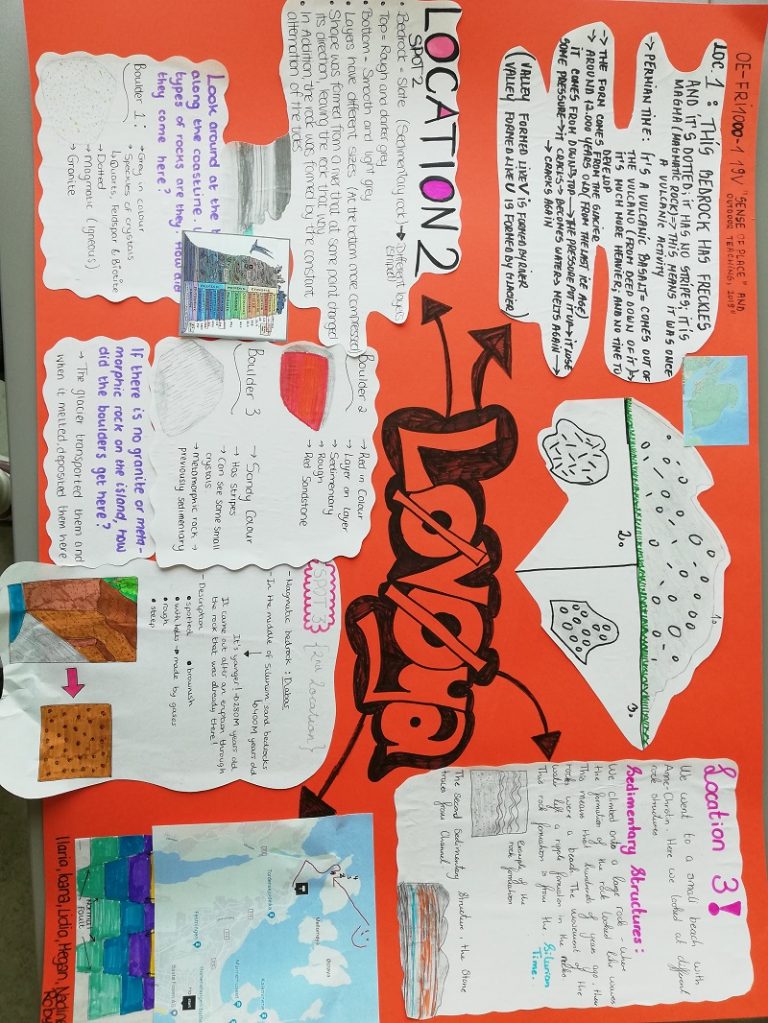 OE-FRI1000-1 19V "SENSE OF PLACE" AND
OUTDOOR TEACHING, 2019"
LOC. 1: THIS BEDROCK HAS FRECKLES
AND IT'S DOTTED; IT HAS NO STRIPES; IT'S
MAGMA (MAGMATIC ROCK) => THIS MEANS IT WAS ONCE
A VULCANIC ACTIVITY
-> PERMIAN TIME: IT'S A VULCANIC BASALT = COMES OUT OF
THE VULCANO (FROM DEEP DOWN OF IT)
IT'S MUCH MORE HEAVIER; AND NO TIME TO
DEVELOP
-> THE FORM COMES FROM THE GLACIER
-> AROUND 12.000 YEARS OLD (FROM THE LAST ICE AGE)
IT COMES FROM DOWN -> TOP -> THE PRESSURE PUT IT UP -> IT LOSE
SOME PRESSURE -> IT CRACKS -> BECOMES WATER & MELTS AGAIN ->
-> CRACKS AGAIN
(VALLEY FORMED LIKE V: IS FORMED BY RIVER
VALLEY FORMED LIKE U IS FORMED BY GLACIER)
1.
2.
3.
LOCATION 2
SPOT 2
• Bedrock - Slate (Sedimentary rock) -> Different layers
• Top = Rough and dark grey
• Bottom - Smooth and light grey
• Layers have different sizes (At the bottom more compressed)
• Shape was formed from a river that at some point changed
its direction, leaving the rock that way
• In Addition, the rock was formed by the constant
alternation of the tides
Look around at the b
along the coastline.
types of rocks are they? How did
they come here?
Boulder 1:
-> Grey in colour
-> Speckles of crystals
↳ Quartz, Feldspar & Biotite
-> Dotted
-> Magmatic (Igneous)
-> Granite
Boulder 2
-> Red in Colour
-> Layer on layer
-> Sedimentary
-> Rough
Red Sandstone
Boulder 3
-> Sandy Colour
-> Has stripes
-> Can see some small
crystals
-> metamorphic rock ->
previously sedimentary
If there is no granite or meta-
morphic rock on the island, how
did the boulders get here?
-> The glacier transported them and
when it melted, deposited them here
LOVØYA
SPOT 3
{2nd Location}
- Magmatic bedrock: Diabas
- In the middle of Silurium sand bedrocks
↳ 400M years old
It's yanger! -> 280M years old
It came out after an eruption through
the rock that was already there!
- Description
• spotted
• brownish
• with holes -> made by gases
• rough
• steep
Location 3!
We went to a small beach with
Anne-Christin. Here we looked at different
rock structures
Sedimentary Structures:
We climbed onto a large rock - where
the formation of the rock looked like waves
This means that hundreds of years ago, the
rocks were a beach. The movement of the
water left a ripple formation in the rocks
This rock formation is from the Silurian
Time.
example of the
rock formation
The Second Sedimentary Structure, the Stone
Normal
Fault
Ilaria, Ioana, Lidia, Megan, Nadine